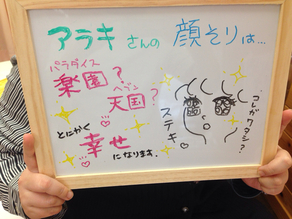 アラキさんの顔そりは...
パラダイス
楽園?
ヘブン
天国?
とにかく
幸せ
になります.
ステキ
これがワタシ?